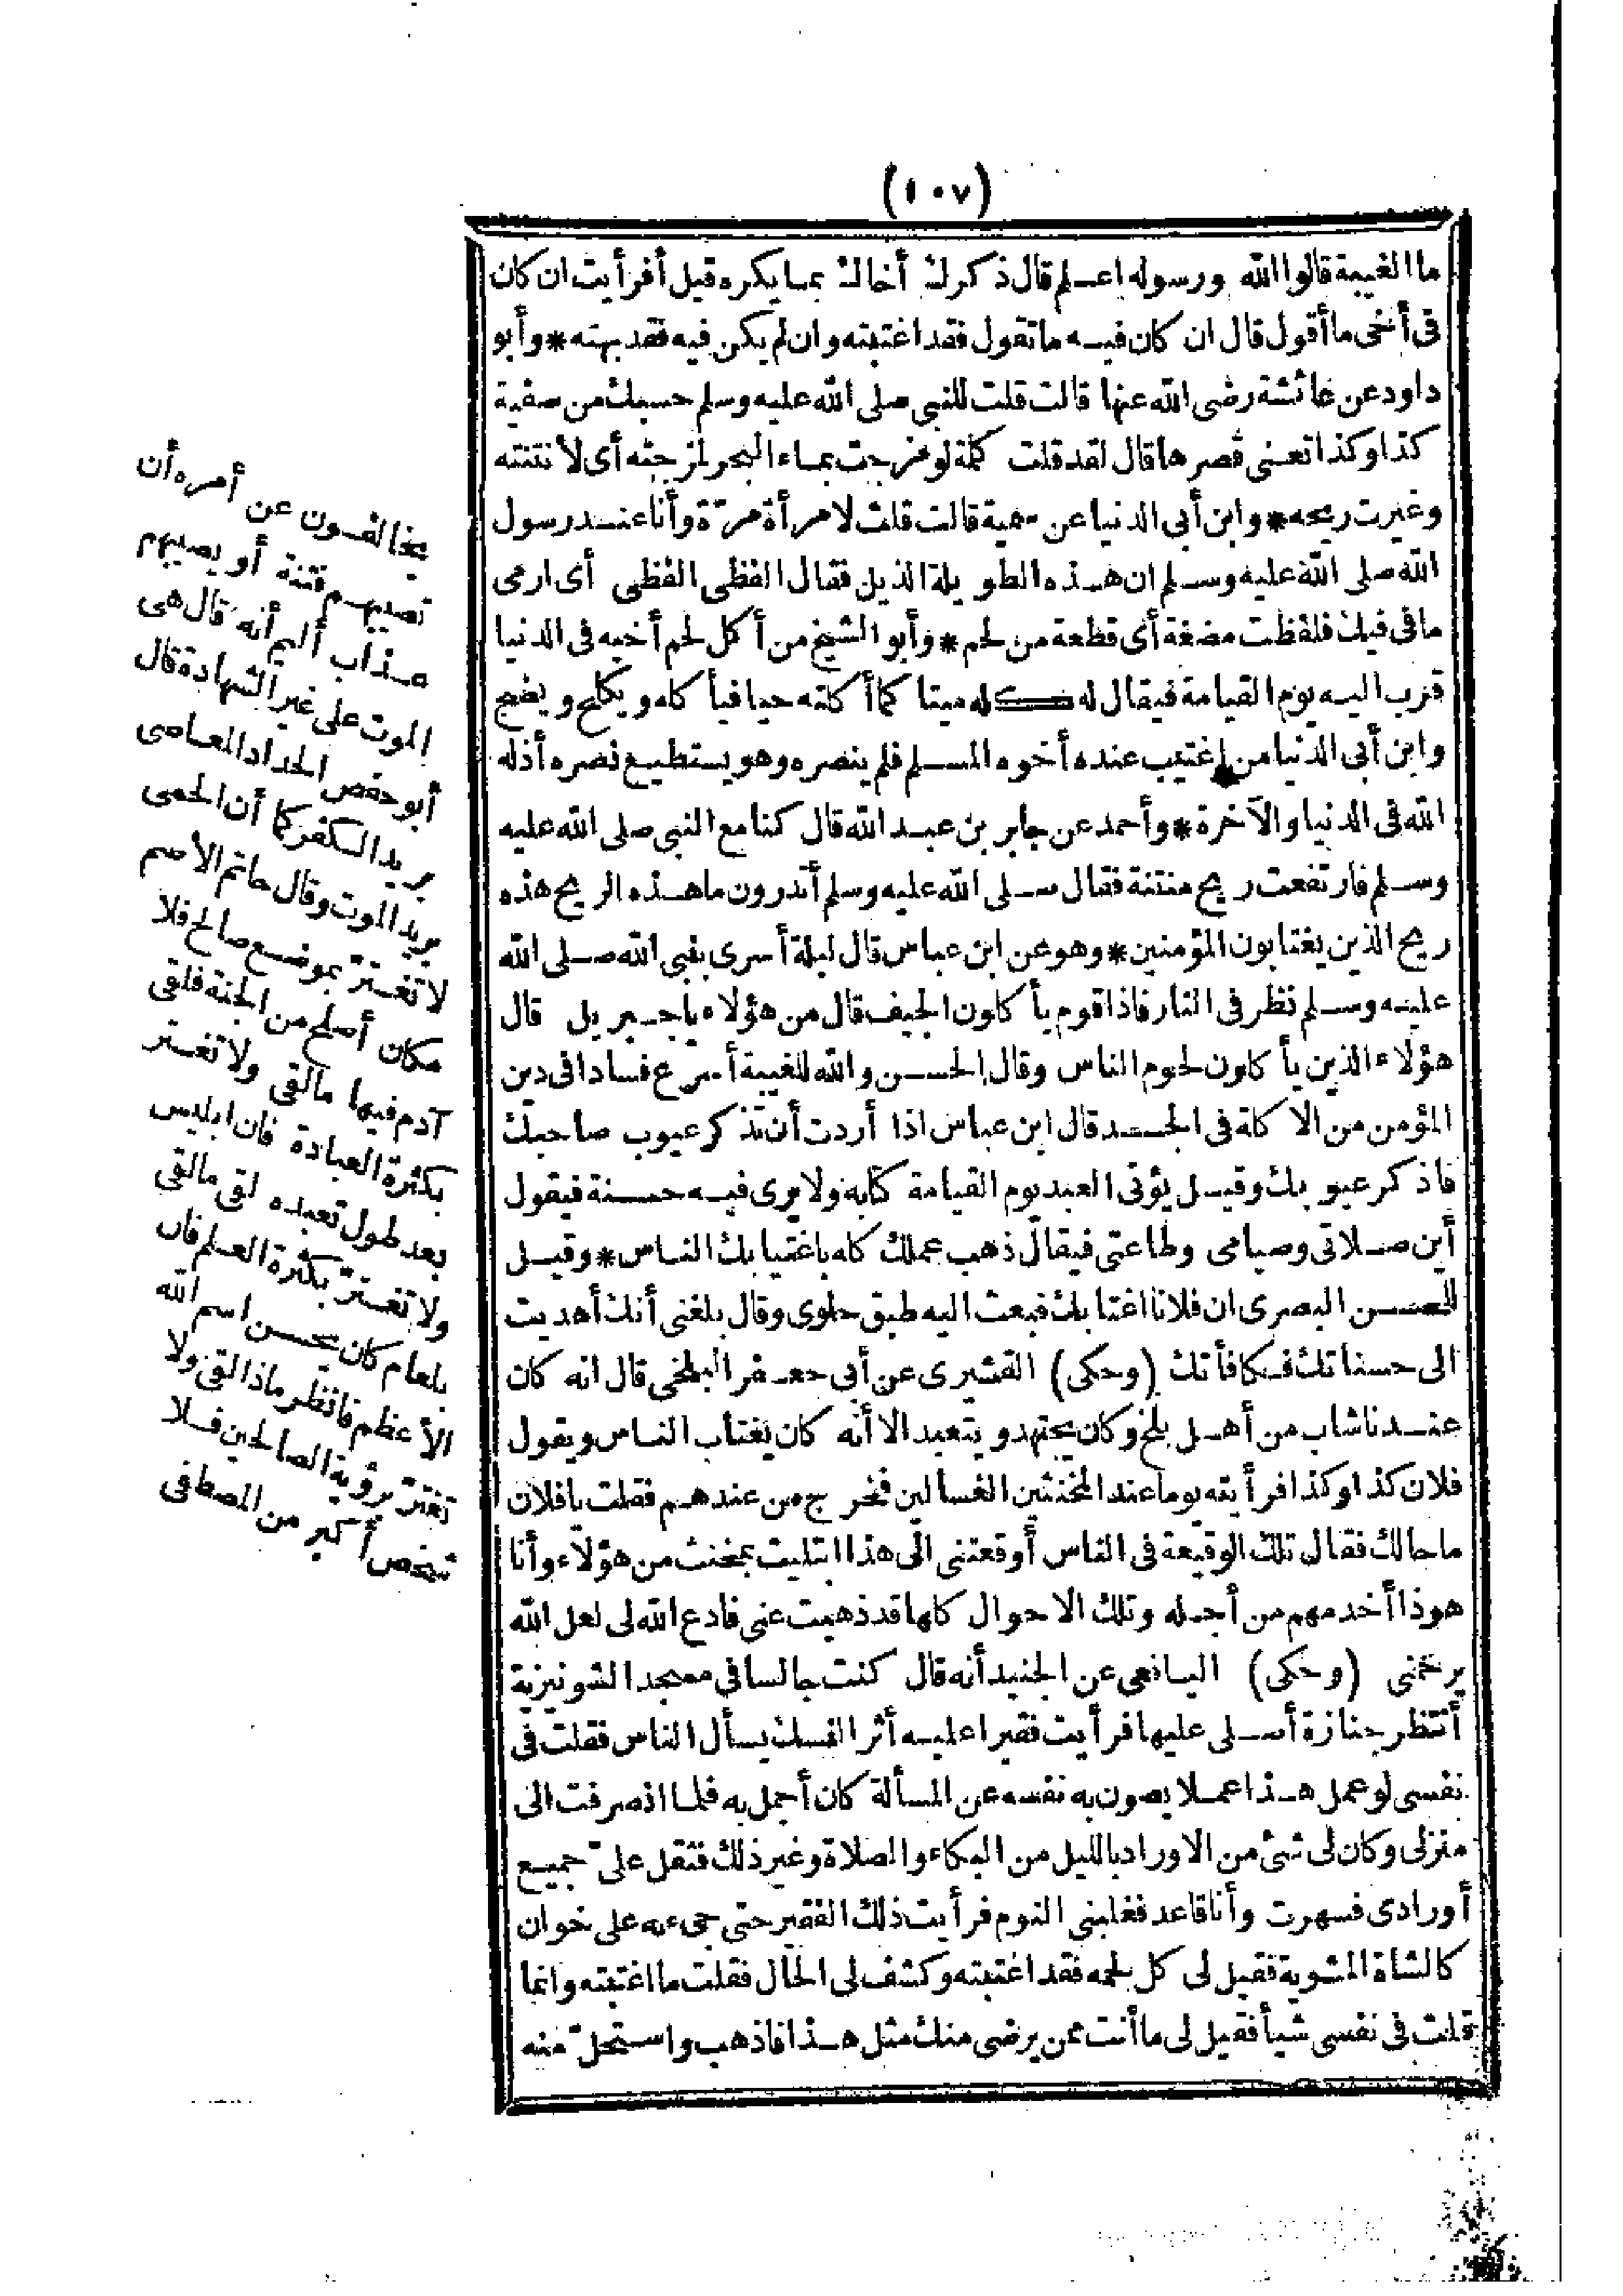 (١٠٧)
ما الغيبة قالوا الله ورسوله اعلم قال ذكرك أخاك بما يكره قيل أفرأيت ان كان
فى أخى ما أقول قال ان كان فيه ما تقول فقد اغتبته وان لم يكن فيه فقد بهته * وأبو
داود عن عائشة رضى الله عنها قالت قلت للنبى صلى الله عليه وسلم حسبك من صفية
كذا وكذا تعنى قصرها قال لقد قلت كلمة لو مزجت بماء البحر لمزجته أى لأنتنته
وغيرت ريحه * وابن أبى الدنيا عن قالت قلت لامرأة مرّة وأنا عند رسول
الله صلى الله عليه وسلم ان هذه الطويلة الذيل فقال الفظى الفظى أى ارمى
ما فى فيك فلفظت مضغة أى قطعة من لحم * وأبو الشيخ من أكل لحم أخيه فى الدنيا
قرب اليه يوم القيامة فيقال له كله ميتا كما أكلته حيا فيأكله ويكلح ويضج
وابن أبى الدنيا من اغتيب عنده أخوه المسلم فلم ينصره وهو يستطيع نصره أذله
الله فى الدنيا والآخرة * وأحمد عن جابر بن عبد الله قال كنا مع النبى صلى الله عليه
وسلم فارتفعت ريح منتنة فقال صلى الله عليه وسلم أتدرون ما هذه الريح هذه
ريح الذين يغتابون المؤمنين * وهو عن ابن عباس قال ليلة أسرى بنبى الله صلى الله
عليه وسلم نظر فى النار فاذا قوم يأكلون الجيف قال من هؤلاء يا جبريل قال
هؤلاء الذين يأكلون لحوم الناس وقال الحسن والله للغيبة أسرع فسادا فى دين
المؤمن من الاكلة فى الجسد قال ابن عباس اذا أردت أن تذكر عيوب صاحبك
فاذكر عيوبك وقيل يؤتى العبد يوم القيامة كتابه ولا يرى فيه حسنة فيقول
أين صلاتى وصيامى وطاعتى فيقال ذهب عملك كله باغتيابك الناس * وقيل
للحسن البصرى ان فلانا اغتابك فبعث اليه طبق حلوى وقال بلغنى أنك أهديت
الى حسناتك فكافأتك (وحكى) القشيرى عن أبى جعفر البلخى قال انه كان
عندنا شاب من أهل بلخ وكان يجتهد ويتعبد الا أنه كان يغتاب الناس ويقول
فلان كذا وكذا فرأيته يوما عند المخنثين الغسالين فخرج من عندهم فقلت يا فلان
ما حالك فقال تلك الوقيعة فى الناس أوقعتنى الى هذا ابتليت بمخنث من هؤلاء وأنا
هوذا أخدمهم من أجله وتلك الاحوال كلها قد ذهبت عنى فادع الله لى لعل الله
يرحمنى (وحكى) اليافعى عن الجنيد أنه قال كنت جالسا فى مسجد الشونيزية
أنتظر جنازة أصلى عليها فرأيت فقيرا عليه أثر النسك يسأل الناس فقلت فى
نفسى لو عمل هذا عملا يصون به نفسه عن المسألة كان أجمل به فلما انصرفت الى
منزلى وكان لى شئ من الاوراد بالليل من البكاء والصلاة وغير ذلك فثقل علىّ جميع
أورادى فسهرت وأنا قاعد فغلبنى النوم فرأيت ذلك الفقير حتى جىء به على خوان
كالشاة المشوية فقيل لى كل لحمه فقد اغتبته وكشف لى الحال فقلت ما اغتبته وانما
قلت فى نفسى شيأ فقيل لى ما أنت ممن يرضى منك مثل هذا فاذهب واستحلّ منه
يخالفون عن أمره أن
تصيبهم فتنة أو يصيبهم
عذاب أليم أنه قال هى
الموت على غير الشهادة قال
أبو حفص الحداد المعاصى
بريد الكفر كما أن الحمى
بريد الموت وقال حاتم الأصم
لا تغترّ بموضع صالح فلا
مكان أصلح من الجنة فلقى
آدم فيها ما لقى ولا تغتر
بكثرة العبادة فان ابليس
بعد طول تعبده لقى ما لقى
ولا تغترّ بكثرة العلم فان
بلعام كان يحسن اسم الله
الأعظم فانظر ماذا لقى ولا
تغترّ برؤية الصالحين فلا
شخص أكبر من المصطفى